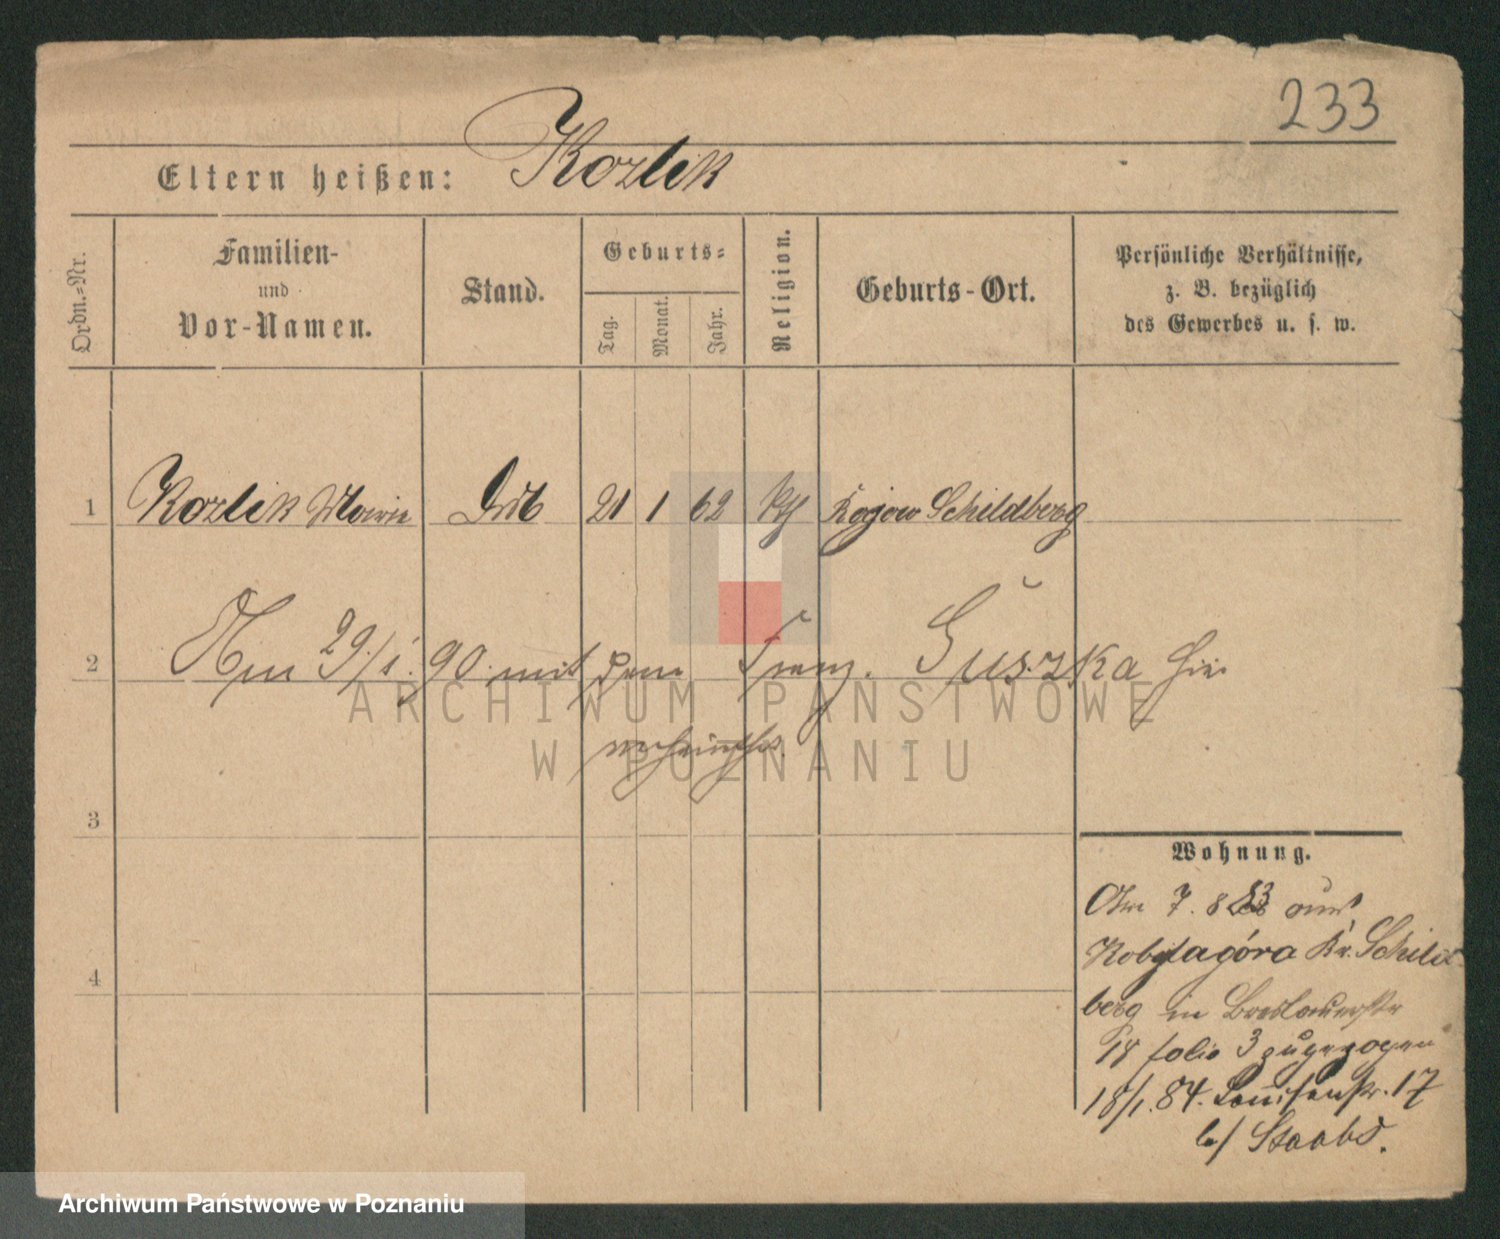 233
Eltern heißen: Kozlik
Ordn.-Nr.
Familien-
und
Vor-Namen.
Stand.
Geburts-
Tag.
Monat.
Jahr.
Religion.
Geburts-Ort.
Persönliche Verhältnisse,
z. B. bezüglich
des Gewerbes u. s. w.
1 Kozlik Marie 21 1 62 Kth Schildberg
2 Am 29/1. 90. mit dem Franz. Guszka hier
verheirathet.
3
4
Wohnung.
Am 7. 8 83 aus
Kobylagóra Kr. Schild
berg in Breslauerstr
18 folio 3 zugezogen
18/1. 84. Louisenstr. 17
b/ Staabs.
ARCHIWUM PAŃSTWOWE
W POZNANIU
Archiwum Państwowe w Poznaniu